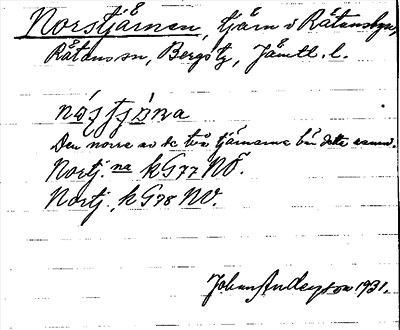 Norstjärnen, tjärn v Råtansbyn,
Råtans sn, Bergs tg, Jämtl. l.
Den norra av de två tjärnarna bär detta namn.
Nortj. na kG77 NÖ.
Nortj. kG78 NV.
Johan Anderson 1931.